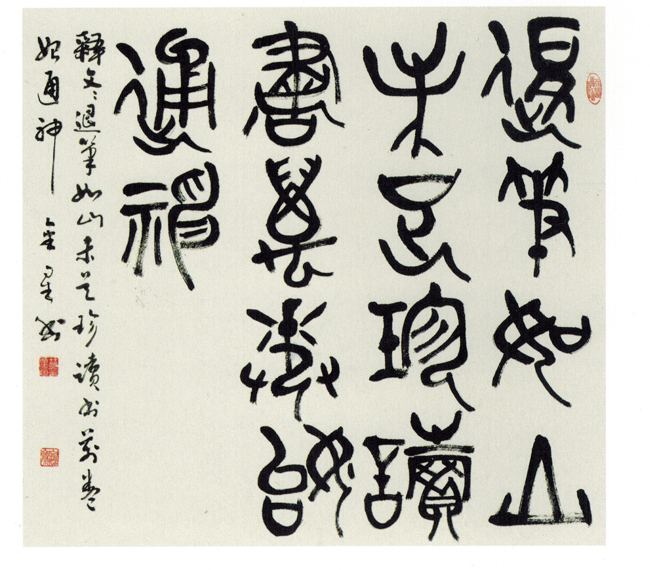 退筆如山
未足珍讀
書萬卷始
通神
釋文：退筆如山未足珍讀书萬卷
始通神 金星书